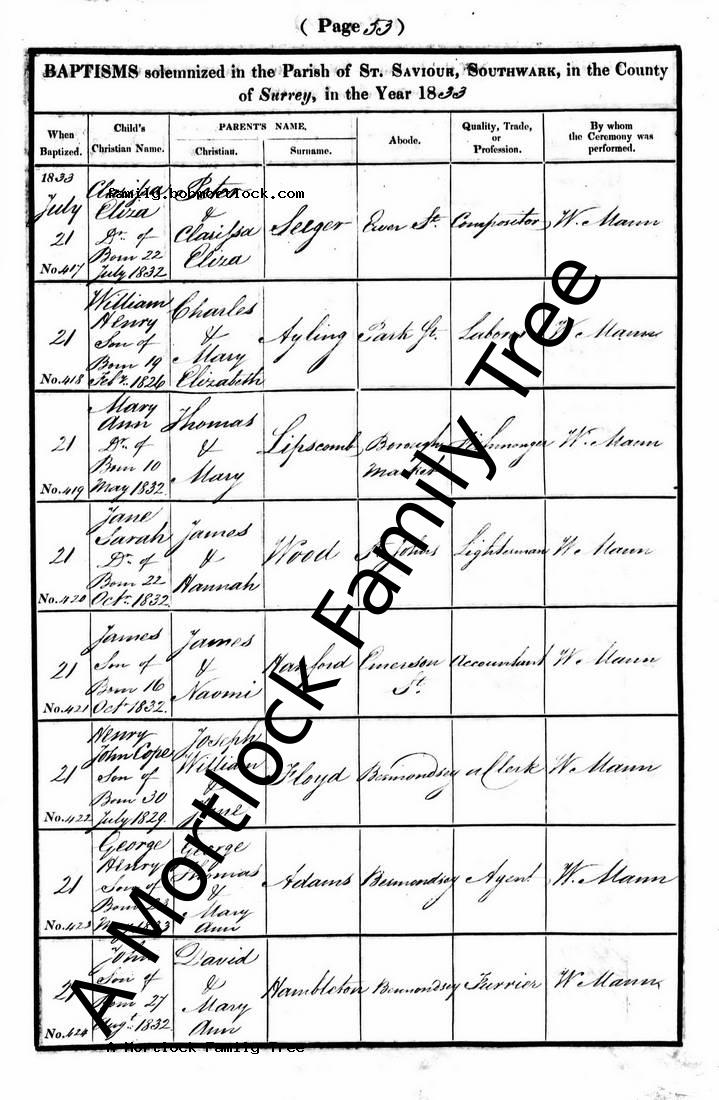 ( Page 53 )
BAPTISMS solemnized in the Parish of ST. SAVIOUR, SOUTHWARK, in the County
of Surrey, in the Year 1833
When
Baptized.
Child's
Christian Name.
PARENT'S NAME.
Christian.
Surname.
Abode.
Quality, Trade,
or
Profession.
By whom
the Ceremony was
performed.
1833
July
21
No. 417
Clarissa
Eliza
Dr. of
Born 22
July 1832
Peter
&
Clarissa
Eliza
Seeger
Ewer St.
Compositor
W. Mann
21
No. 418
William
Henry
Son of
Born 19
Feby. 1826
Charles
&
Mary
Elizabeth
Ayling
Park St.
Laborer
W. Mann
21
No. 419
Mary
Ann
Dr. of
Born 10
May 1832
Thomas
&
Mary
Lipscomb
Borough
Market
Fishmonger
W. Mann
21
No. 420
Jane
Sarah
Dr. of
Born 22
Octr. 1832
James
&
Hannah
Wood
St. Johns
Lighterman
W. Mann
21
No. 421
James
Son of
Born 16
Oct 1832
James
&
Naomi
Hanford
Emerson
St.
Accountant
W. Mann
21
No. 422
Henry
John Cope
Son of
Born 30
July 1829
Joseph
William
&
Jane
Floyd
Bermondsey
a Clerk
W. Mann
21
No. 423
George
Henry
Son of
Born 23
1833
George
Thomas
&
Mary
Ann
Adams
Bermondsey
Agent
W. Mann
21
No. 424
John
Son of
Born 27
Augt. 1832
David
&
Mary
Ann
Hambleton
Bermondsey
Furrier
W Mann
family.bobmortlock.com
A Mortlock Family Tree
A Mortlock Family Tree